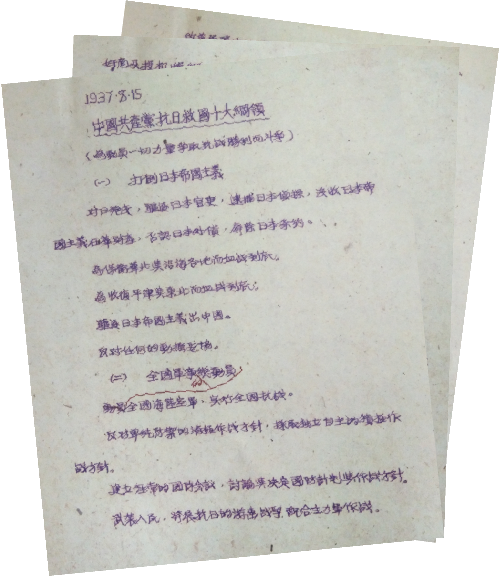 1937.8.15
中國共產黨抗日救國十大綱領
(為動員一切力量爭取抗战勝利而斗爭)
(一) 打倒日本帝國主義
对日絶交,驅逐日本官吏,逮捕日本偵探,没收日本帝
國主義在華財產,否認日本对債,廢除日本条約。
為保衛華北與沿海各地而血战到底;
為收復平津與東北而血战到底;
驅逐日本帝國主義出中國。
反对任何的動搖妥協。
(二) 全國軍事總動員
動員全國海陸空軍,实行全國抗战。
反对單純防禦的消極作战方針,採取獨立自主的積極作
战方針。
建立經常的國防会議,討論與决定國防計劃與作战方針。
武装人民,發展抗日的游擊战争,配合主力軍作战。